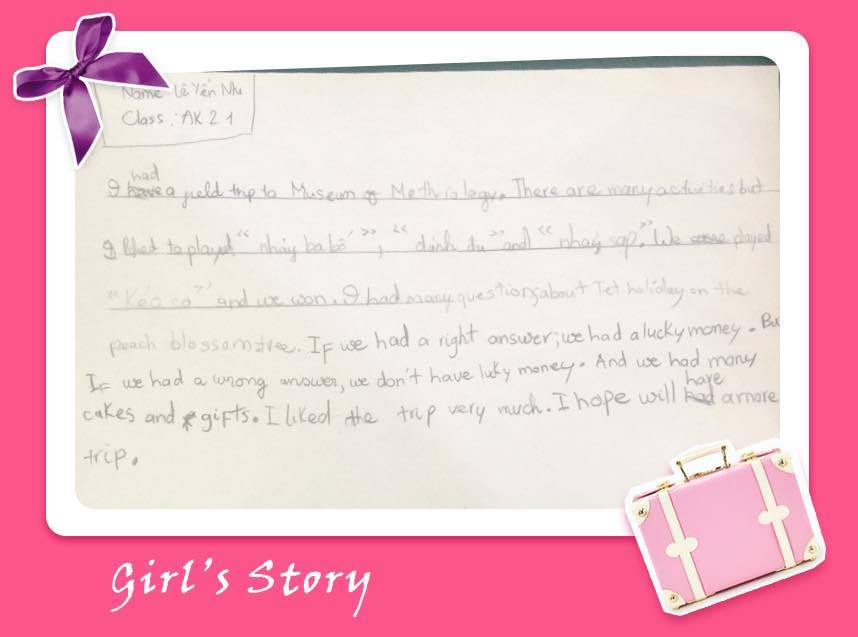 Name Lê Yến Nhi
Class : AK 2 1
had
I have a field trip to Museum of Methrology. There are many activities but
I liked to played " nhảy ba bố " , " đánh đu " and " nhảy sạp ". We played
"Kéo co" and we won. I had many questions about Tet holiday on the
peach blossom tree. If we had a right answer, we had a lucky money. But
If we had a wrong answer, we don't have lucky money. And we had many
have
cakes and gifts. I liked the trip very much. I hope will had a more
trip.
Girl's Story